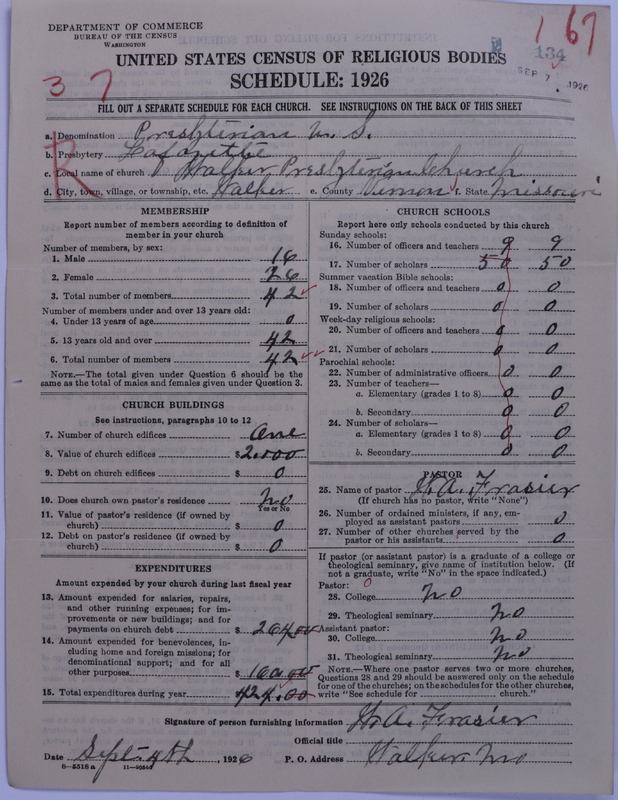 DEPARTMENT OF COMMERCE
BUREAU OF THE CENSUS
WASHINGTON
1 67
134
SEP 7 1926
UNITED STATES CENSUS OF RELIGIOUS BODIES
3 7
SCHEDULE: 1926
FILL OUT A SEPARATE SCHEDULE FOR EACH CHURCH. SEE INSTRUCTIONS ON THE BACK OF THIS SHEET
R
a. Denomination Presbyterian U. S.
b. Presbytery Lafayette
c. Local name of church Walker Presbyterian Church
d. City, town, village, or township, etc. Walker e. County Vernon f. State Missouri
MEMBERSHIP
Report number of members according to definition of
member in your church
Number of members, by sex:
1. Male 16
2. Female 26
3. Total number of members 42
Number of members under and over 13 years old:
4. Under 13 years of age 0
5. 13 years old and over 42
6. Total number of members 42
NOTE.—The total given under Question 6 should be the
same as the total of males and females given under Question 3.
CHURCH BUILDINGS
See instructions, paragraphs 10 to 12
7. Number of church edifices One
8. Value of church edifices $2.000
9. Debt on church edifices $ 0
10. Does church own pastor's residence No
Yes or No
11. Value of pastor's residence (if owned by
church) $ 0
12. Debt on pastor's residence (if owned by
church) $ 0
EXPENDITURES
Amount expended by your church during last fiscal year
13. Amount expended for salaries, repairs,
and other running expenses; for im-
provements or new buildings; and for
payments on church debt $ 264.00
14. Amount expended for benevolences, in-
cluding home and foreign missions; for
denominational support; and for all
other purposes $ 160.00
15. Total expenditures during year 424.00
CHURCH SCHOOLS
Report here only schools conducted by this church
Sunday schools:
16. Number of officers and teachers 9 9
17. Number of scholars 50 50
Summer vacation Bible schools:
18. Number of officers and teachers 0 0
19. Number of scholars 0 0
Week-day religious schools:
20. Number of officers and teachers 0 0
21. Number of scholars 0 0
Parochial schools:
22. Number of administrative officers 0 0
23. Number of teachers—
a. Elementary (grades 1 to 8) 0 0
b. Secondary 0 0
24. Number of scholars—
a. Elementary (grades 1 to 8) 0 0
b. Secondary 0 0
PASTOR
25. Name of pastor H. A. Frasier
(If church has no pastor, write "None")
26. Number of ordained ministers, if any, em-
ployed as assistant pastors 0
27. Number of other churches served by the
pastor or his assistants 0
If pastor (or assistant pastor) is a graduate of a college or
theological seminary, give name of institution below. (If
not a graduate, write "No" in the space indicated.)
Pastor: 0
28. College No
29. Theological seminary No
Assistant pastor:
30. College No
31. Theological seminary No
NOTE.—Where one pastor serves two or more churches,
Questions 28 and 29 should be answered only on the schedule
for one of the churches; on the schedules for the other churches,
write "See schedule for church."
Signature of person furnishing information H. A. Frasier
Official title
Date Sept-4th, 1926 P. O. Address Walker Mo
8—5518 a